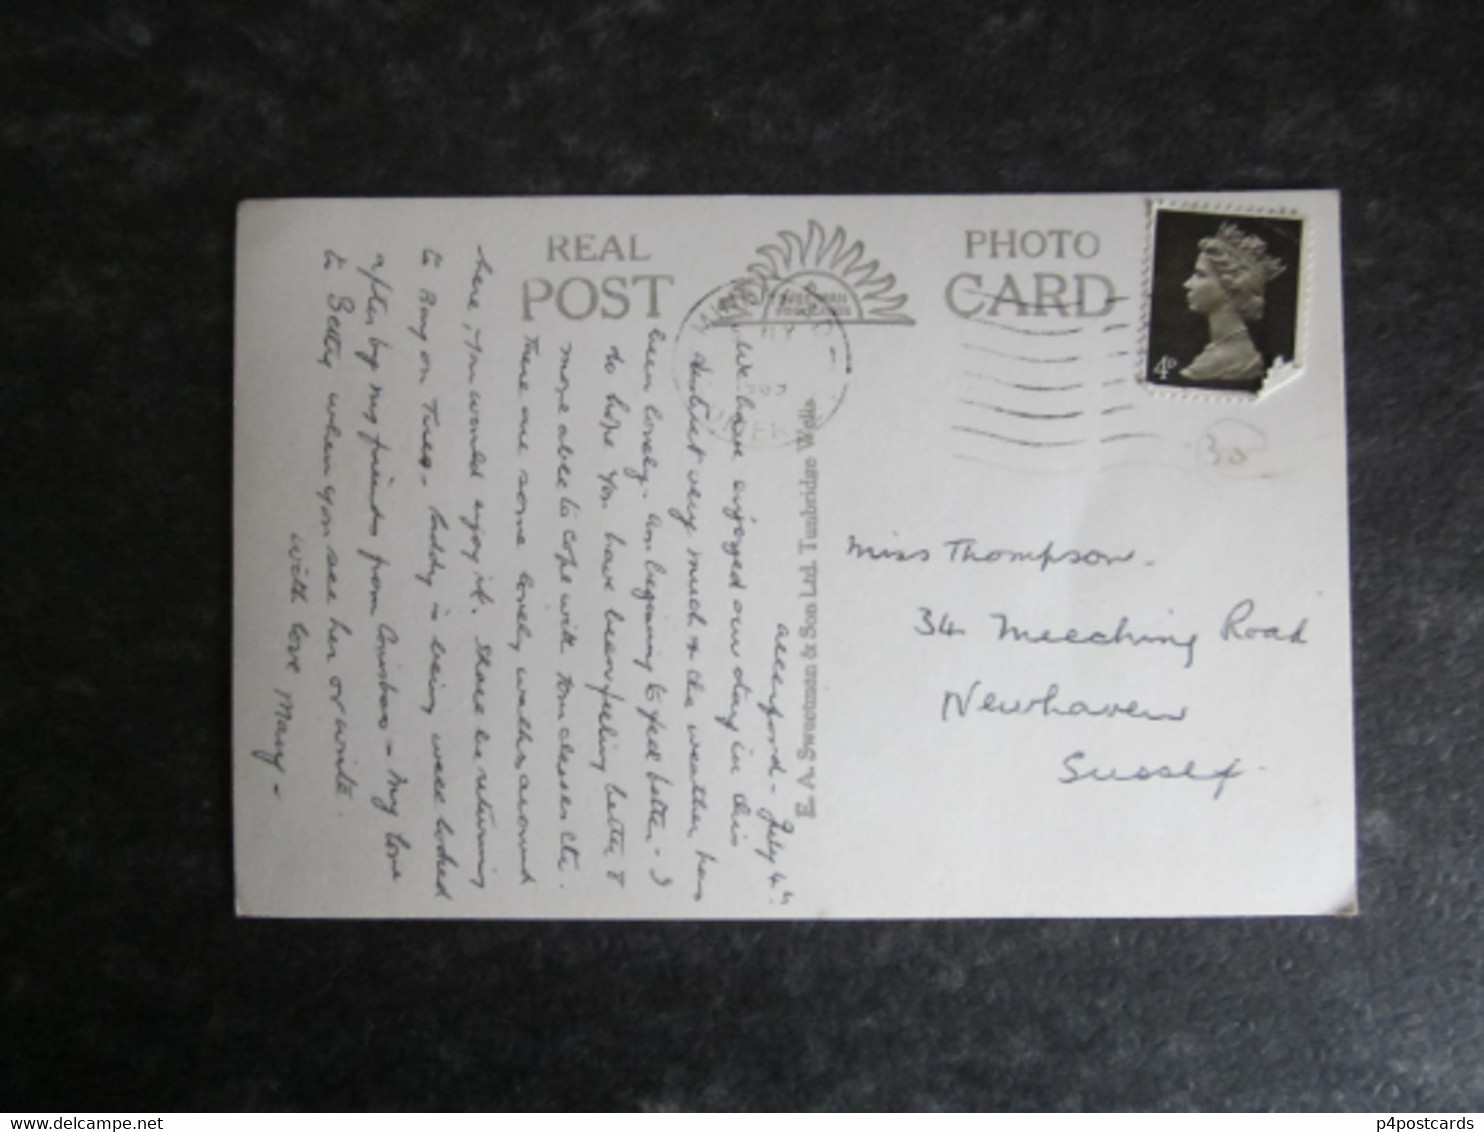 REAL PHOTO
POST CARD
4D
30
E. A. Sweetman & Son Ltd. Tunbridge Wells
Miss Thompson.
34 Meeching Road
Newhaven
Sussex.
July 4th.
We have enjoyed our stay in this
district very much & the weather has
been lovely. Am beginning to feel better - I
do hope you have been feeling better &
more able to cope with
There are some lovely walks around
here, you would enjoy it. Shall be returning
to Ray on Tues. is being well looked
after by my friends from - My love
to Betty when you see her or write.
with love Mary -
delcampe.net
p4postcards